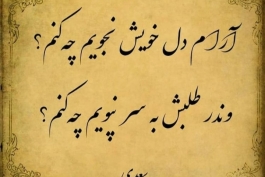 آرام دل خویش نجویم چه کنم؟
وندر طلبش به سر نپویم چه کنم؟
سعدی